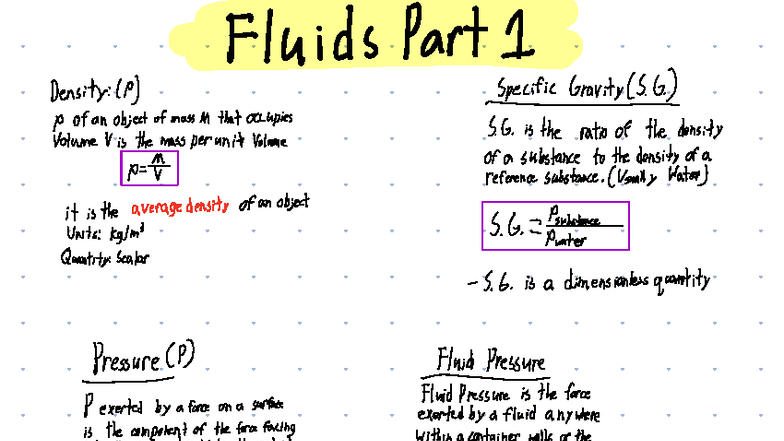 Fluids Part 1
Density: (ρ)
ρ of an object of mass M that occupies
Volume V is the mass per unit Volume
ρ = M/V
it is the average density of an object
Units: kg/m³
Quantity: Scalar
Specific Gravity (S.G.)
S.G. is the ratio of the density
of a substance to the density of a
reference substance. (Usually Water)
S.G. = ρsubstance/ρwater
- S.G. is a dimensionless quantity
Pressure (P)
P exerted by a force on a surface
is the component of the force facing
Fluid Pressure
Fluid Pressure is the force
exerted by a fluid anywhere
within a container walls or the